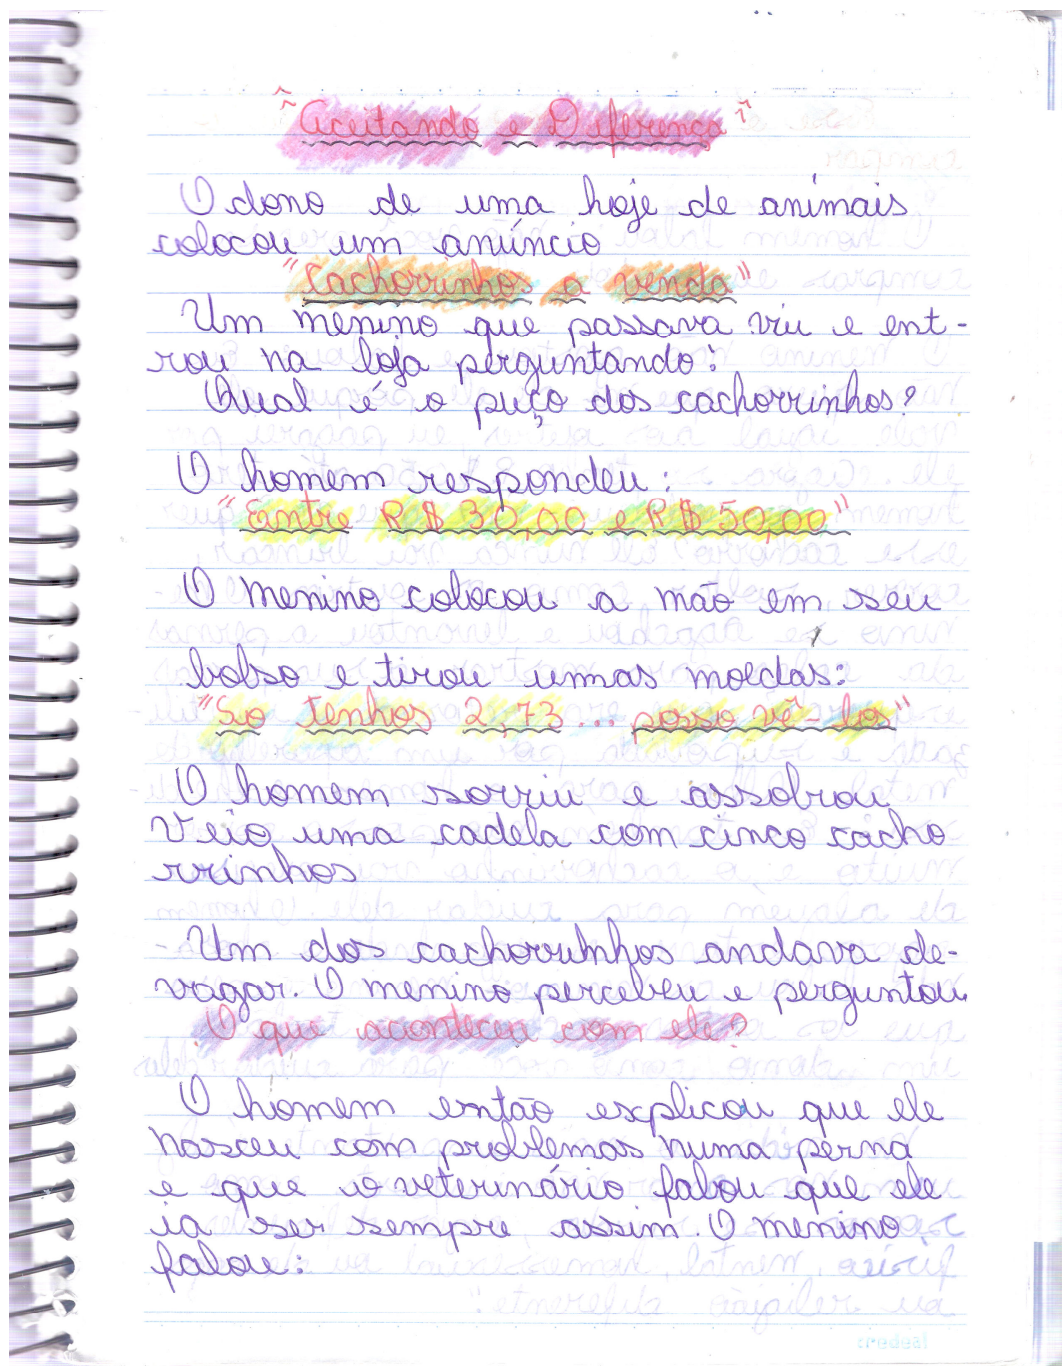 "Aceitando e Diferença"
O dono de uma hoje de animais
colocou um anúncio
"Cachorrinhos a venda"
Um menino que passava viu e ent-
rou na loja perguntando:
Qual é o puço dos cachorrinhos?
O homem respondeu:
"Entre R$ 30,00 e R$ 50,00"
O menino colocou a mão em seu
bolso e tirou umas moedas:
"So tenhos 2,73... posso vê-los"
O homem sorriu e assobrou
Veio uma cadela com cinco cacho
rrinhos
Um dos cachorrinhos andava de-
vagar. O menino percebeu e perguntou
O que aconteceu com ele?
O homem então explicou que ele
nasceu com problemas numa perna
e que o veterinário falou que ele
ia ser sempre assim. O menino
falou:
credeal